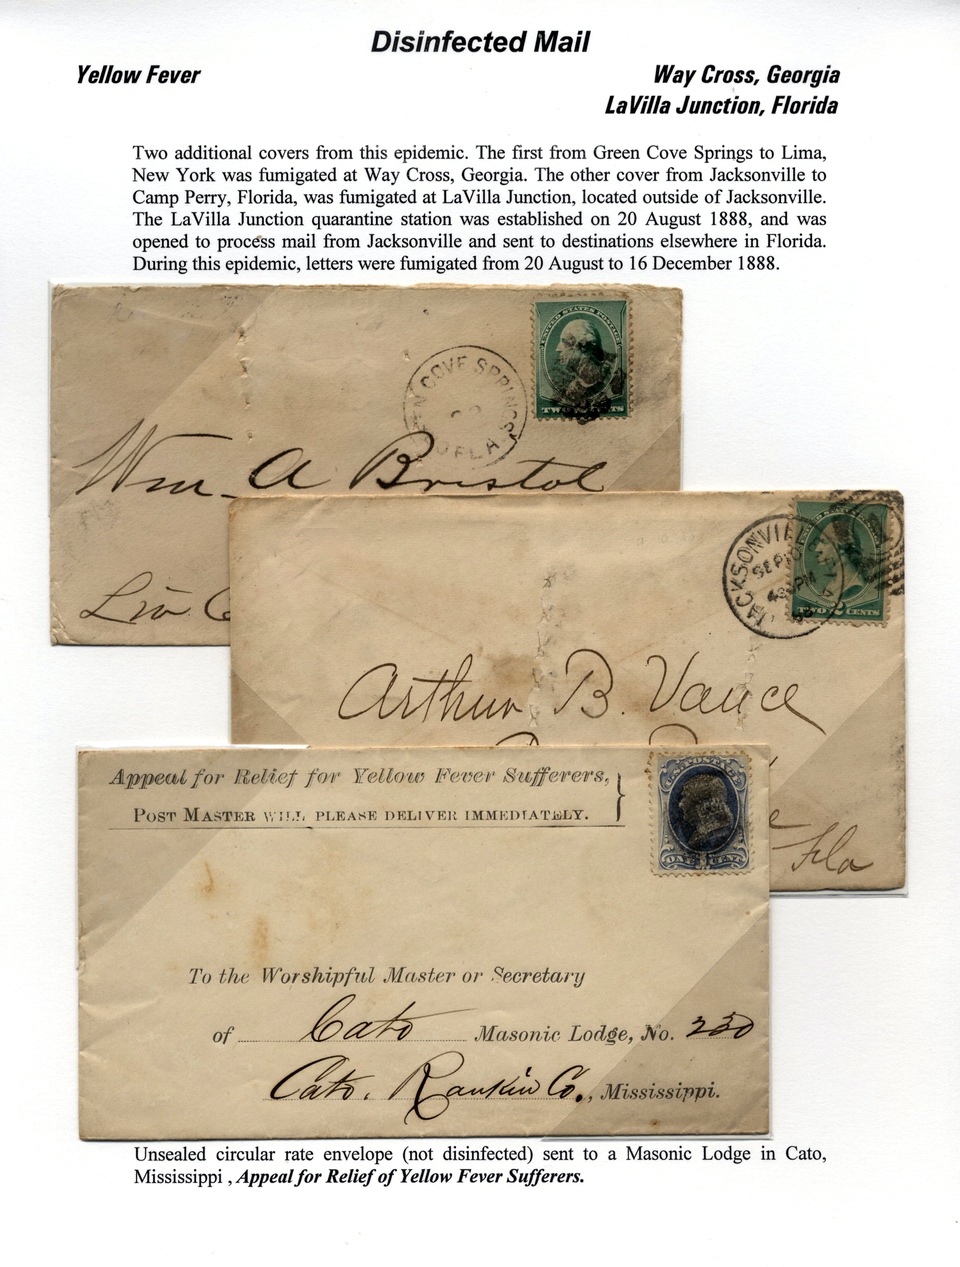 Disinfected Mail
Yellow Fever
Way Cross, Georgia
LaVilla Junction, Florida
Two additional covers from this epidemic. The first from Green Cove Springs to Lima,
New York was fumigated at Way Cross, Georgia. The other cover from Jacksonville to
Camp Perry, Florida, was fumigated at LaVilla Junction, located outside of Jacksonville.
The LaVilla Junction quarantine station was established on 20 August 1888, and was
opened to process mail from Jacksonville and sent to destinations elsewhere in Florida.
During this epidemic, letters were fumigated from 20 August to 16 December 1888.
UNITED STATES POSTAGE
TWO CENTS
EN COVE SPRINGS
FLA
Wm A Bristol
Liv
JACKSONVILLE
SEP
PM
TWO 2 CENTS
Arthur B. Vance
Fla
Appeal for Relief for Yellow Fever Sufferers,
POST MASTER WILL PLEASE DELIVER IMMEDIATELY.
U.S. POSTAGE
ONE CENT
To the Worshipful Master or Secretary
of Cato Masonic Lodge, No. 230
Cato, Rankin Co., Mississippi.
Unsealed circular rate envelope (not disinfected) sent to a Masonic Lodge in Cato,
Mississippi , Appeal for Relief of Yellow Fever Sufferers.